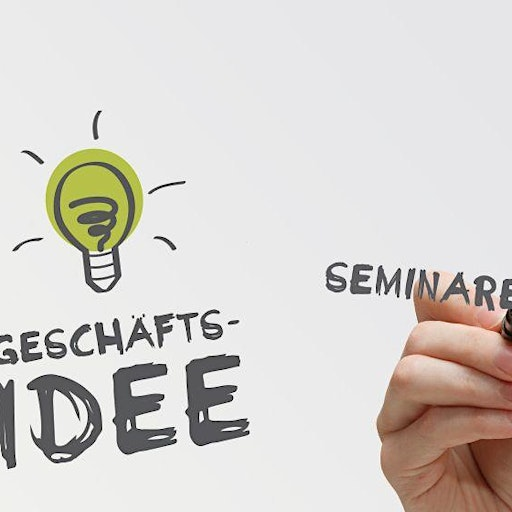 GESCHÄFTS-
IDEE
SEMINARE